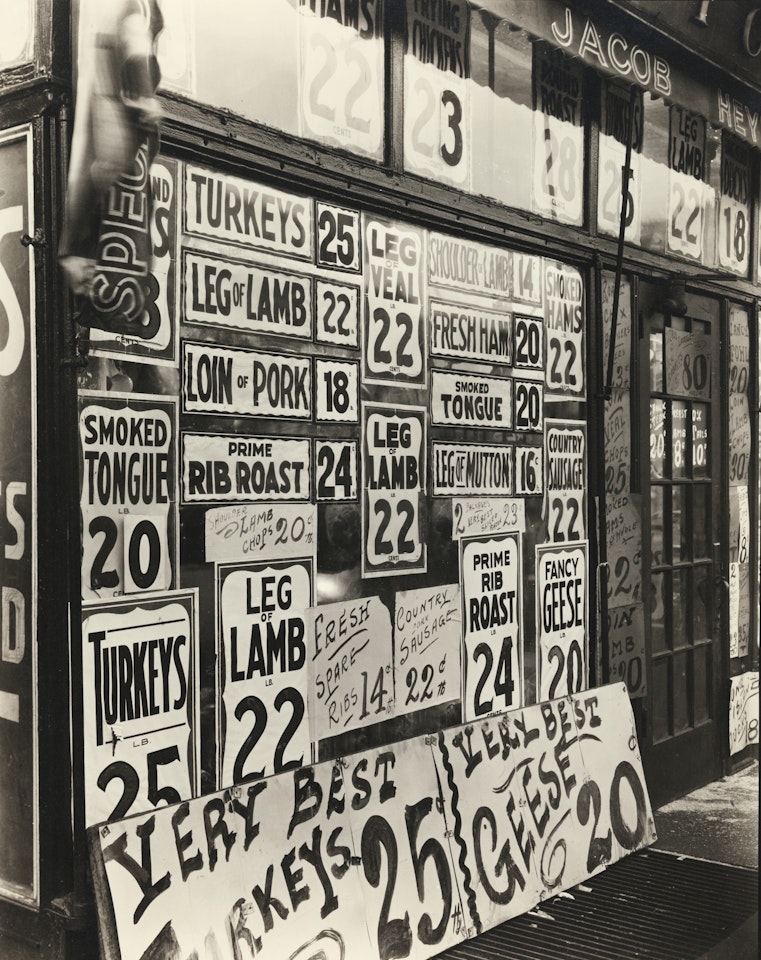 JACOB
HEY
HAMS
22
CENTS
FRYING
CHICKENS
23
ROAST
28
CENTS
5
LEG
OF
LAMB
22
DUCKS
18
SPEC
TURKEYS 25
LEG OF LAMB 22
LOIN OF PORK 18
PRIME
RIB ROAST 24
LEG
OF
VEAL
22
CENTS
LEG
OF
LAMB
22
CENTS
SHOULDER OF LAMB 14
FRESH HAM 20
SMOKED
TONGUE 20
LEG OF MUTTON 16
SMOKED
HAMS
22
COUNTRY
SAUSAGE
22
SMOKED
TONGUE
LB.
20
SHOULDER
LAMB
CHOPS 20¢
23
TURKEYS
LB.
25
LEG
OF
LAMB
LB.
22
FRESH
SPARE
RIBS 14¢
COUNTRY
PORK
SAUSAGE
22¢ lb
PRIME
RIB
ROAST
LB.
24
FANCY
GEESE
LB.
20
80
VERY BEST
TURKEYS 25¢ lb
VERY BEST
GEESE 20¢